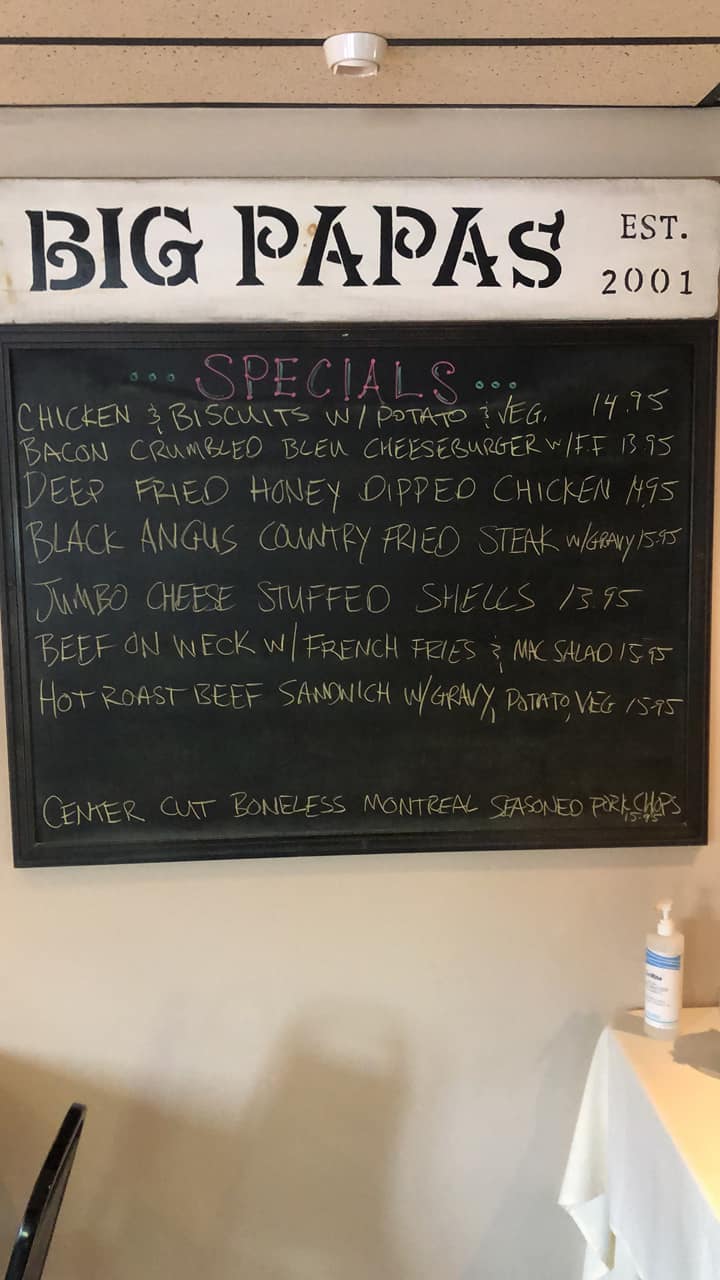 BIG PAPAS EST. 2001
SPECIALS
CHICKEN & BISCUITS W/ POTATO & VEG. 14.95
BACON CRUMBLED BLEU CHEESEBURGER W/F.F 13.95
DEEP FRIED HONEY DIPPED CHICKEN 14.95
BLACK ANGUS COUNTRY FRIED STEAK W/GRAVY 15.95
JUMBO CHEESE STUFFED SHELLS 13.95
BEEF ON WECK W/ FRENCH FRIES & MAC SALAD 15.95
HOT ROAST BEEF SANDWICH W/GRAVY, POTATO, VEG 15.95
CENTER CUT BONELESS MONTREAL SEASONED PORK CHOPS
15.95